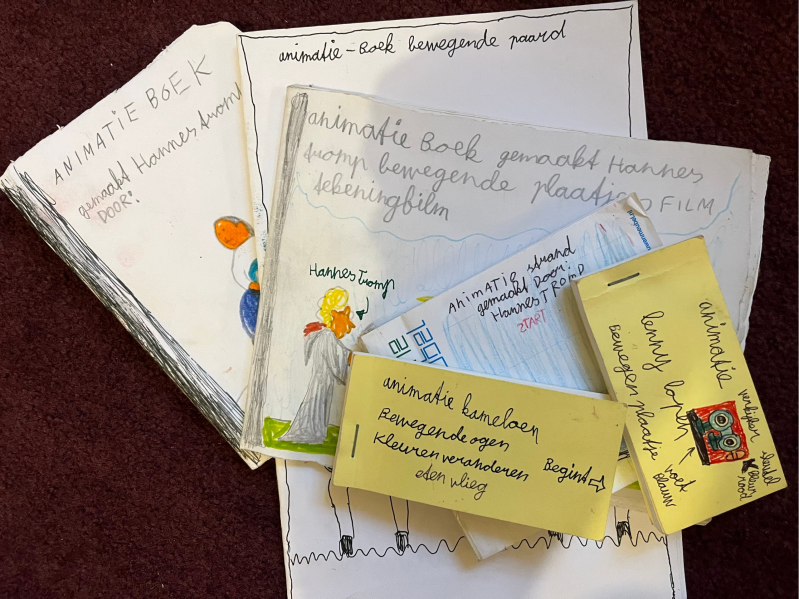 ANIMATIE BOEK
gemaakt Hannes tromp
DOOR:
animatie-Boek bewegende paard
animatie Boek gemaakt Hannes
tromp bewegende plaatjes FILM
tekeningfilm
Hannes Tromp
ANIMATIE strand
gemaakt DOOR:
Hannes TROMP
START
animatie kameloen
Bewegende ogen
Kleuren veranderen
eten vlieg
Begint
animatie
lenny lopen
Bewegen plaatje
voet
Blauw
verkijker
sleutel
Blauw
rood